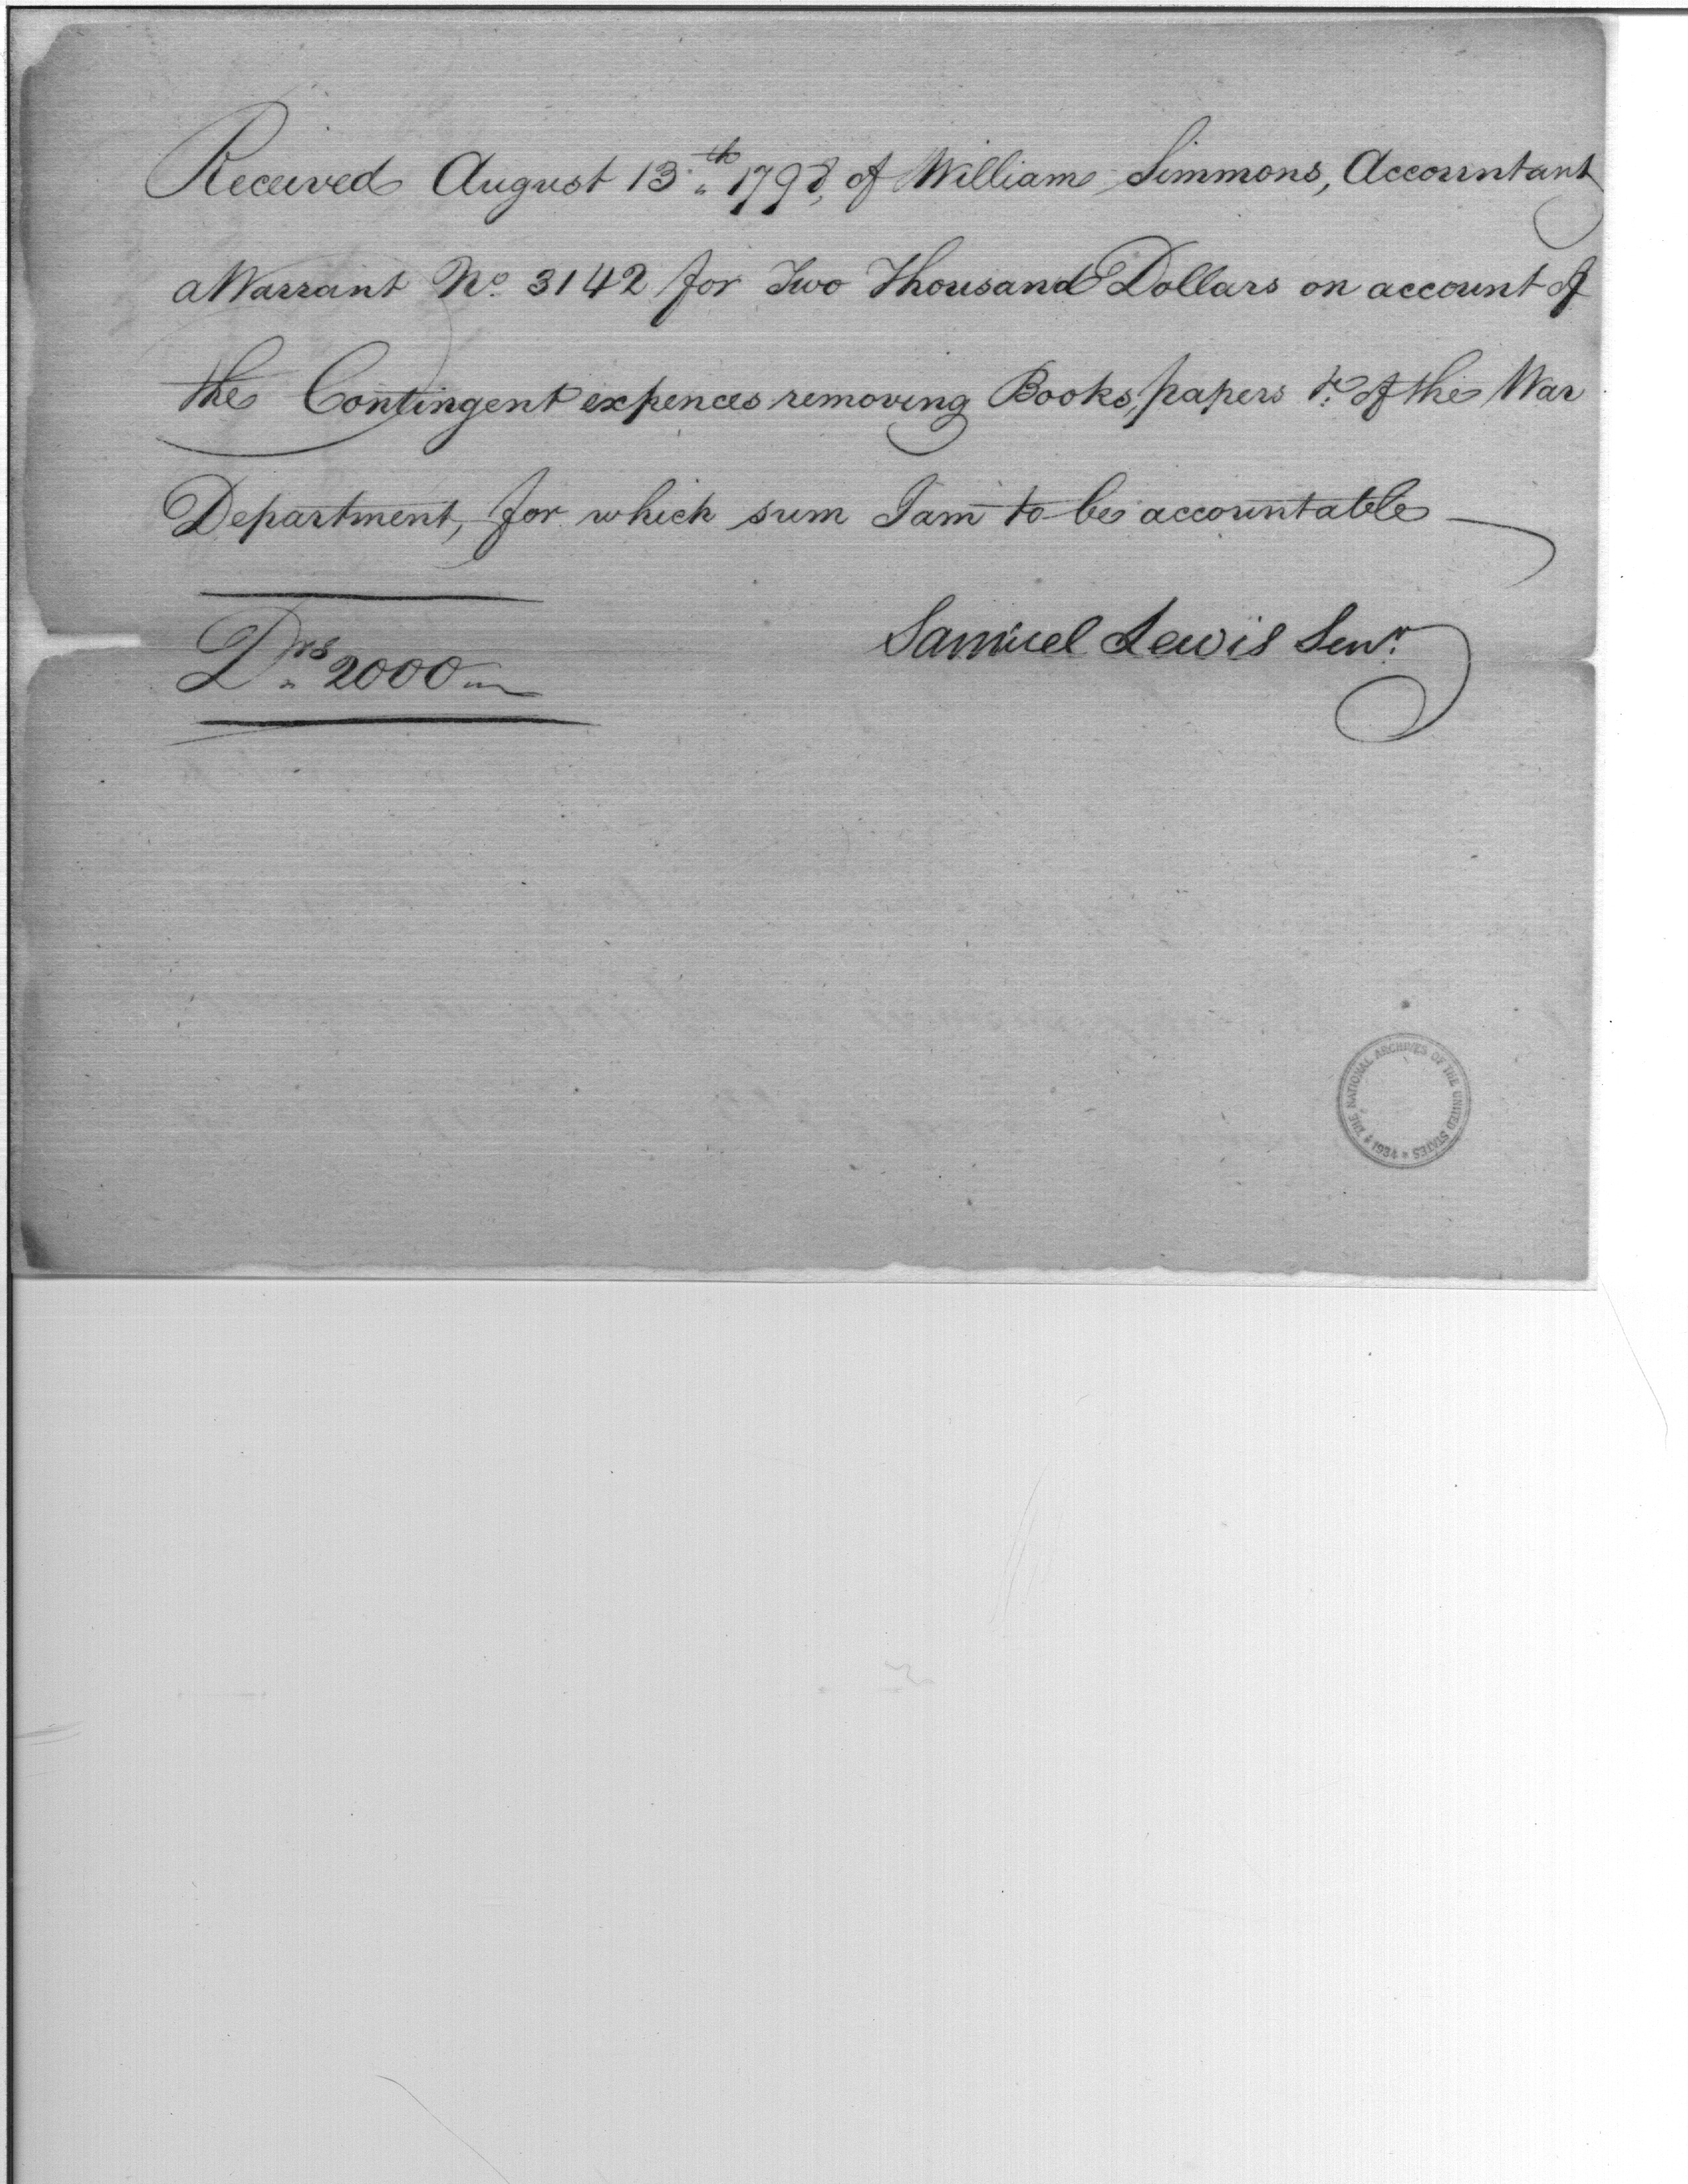 Received August 13th 1798, of William Simmons, Accountant
a Warrant No. 3142 for Two Thousand Dollars on account of
the Contingent expences removing Books, papers &c. of the War
Department, for which sum I am to be accountable
Drs 2000
Samuel Lewis Senr.
THE NATIONAL ARCHIVES OF THE UNITED STATES * 1934 *